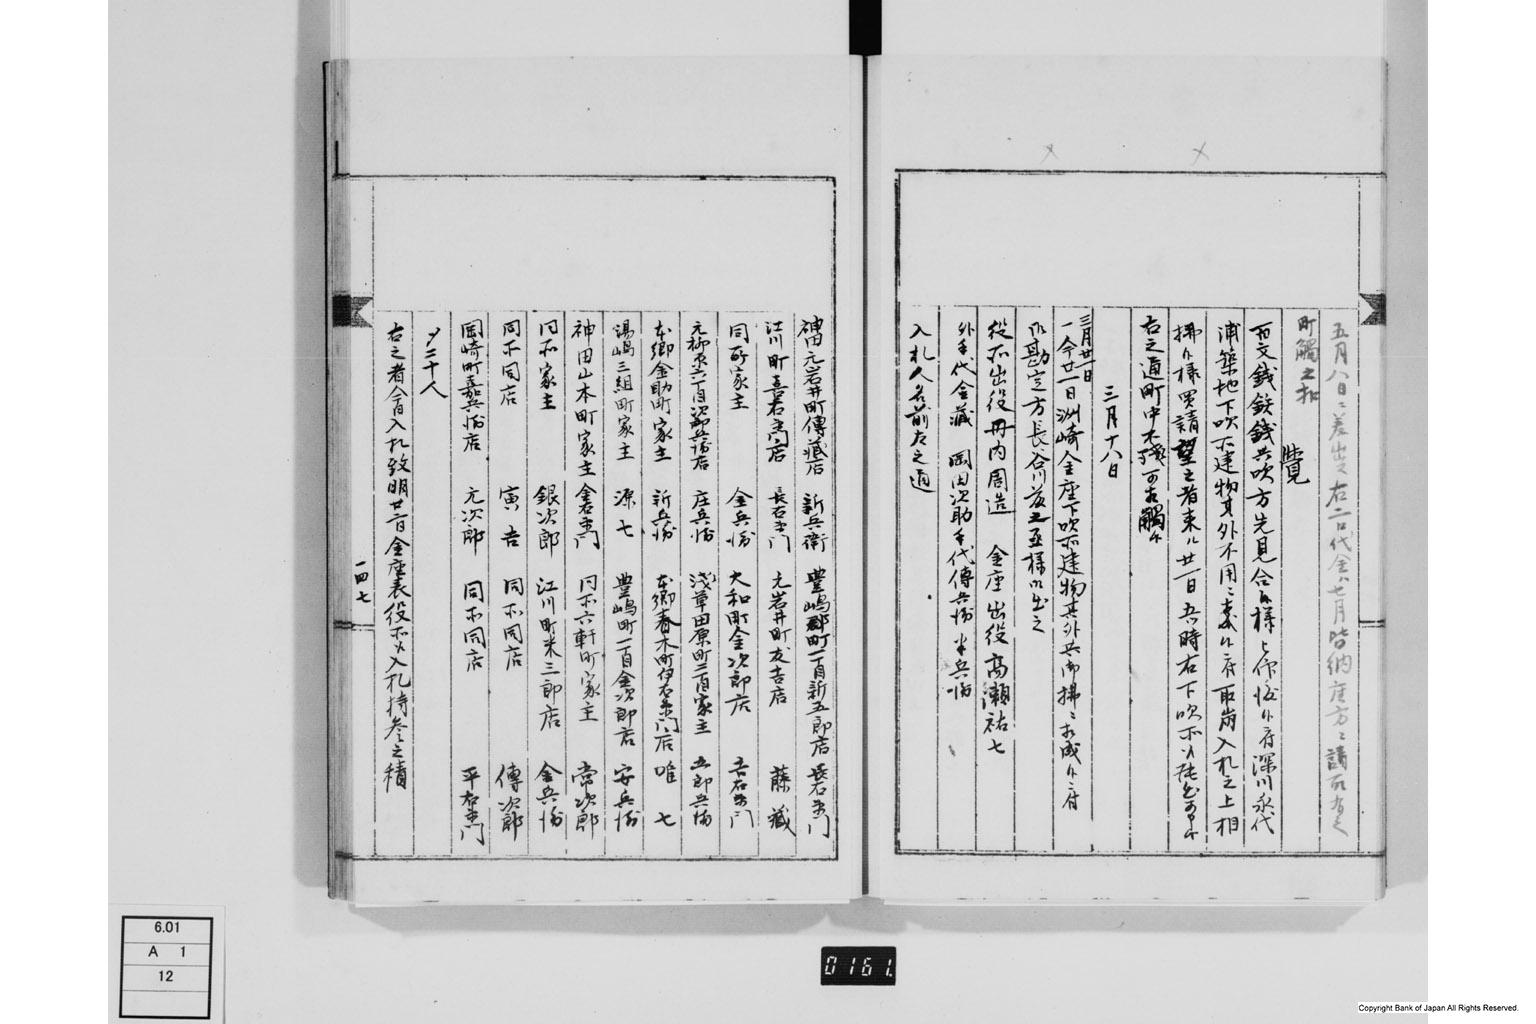 五月八日ニ差出ス右二口代金ハ七月皆納座方ニ請取有之
町觸之扣
覺
百文錢鉄錢共吹方先見合候樣被仰渡候ニ付深川永代
浦築地下吹所建物其外不用ニ相成候ニ付取崩入札之上相
拂候樣買請望之者來ル廿一日五時右下吹所江罷出可申候
右之通町中不殘可相觸候
三月十八日
三月廿一日
一今廿一日洲崎金座下吹所建物其外共御拂ニ相成候ニ付
御勘定方長谷川
役所出役冊内周造 金座出役高瀬祐七
外手代金藏 岡田次助手代傳兵衞 半兵衞
入札人名前左之通
神田元岩井町傳藏店 新兵衞 豊嶋町一丁目新五郎店 長右衞門
江川町喜右衞門店 長右衞門 元岩井町友吉店 藤藏
同所家主 金兵衞 大和町金次郎店 吉右衞門
元柳原六丁目次郎兵衞店 庄兵衞 淺草田原町二丁目家主 五郎兵衞
本郷金助町家主 新兵衞 本郷春木町伊右衞門店 唯七
湯嶋三組町家主 源七 豊嶋町一丁目金次郎店 安兵衞
神田山本町家主 金右衞門 同所六軒町家主 常次郎
同所家主 銀次郎 江川町米三郎店 金兵衞
同所同店 寅吉 同所同店 傳次郎
岡崎町嘉兵衞店 元次郎 同所同店 平右衞門
〆二十人
右之者今日入札致明廿二日金座表役所江入札持参之積
一四七
6.01
A 1
12
0161.
Copyright Bank of Japan All Rights Reserved.